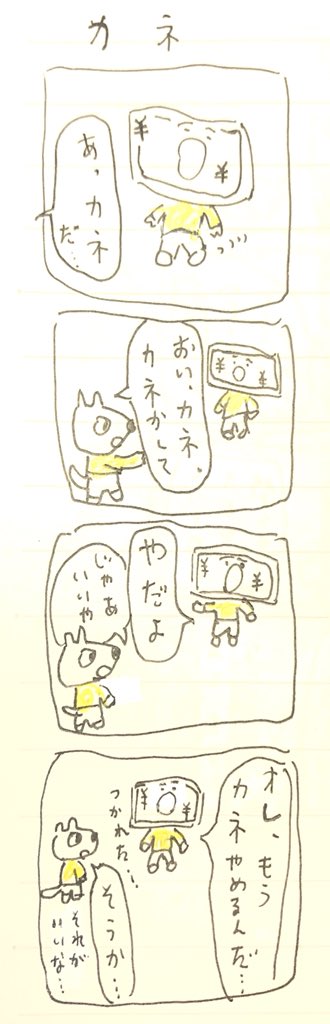 カネ
¥
¥
あっ カネ
だ…
¥
¥
おい、カネ、
カネかして
¥
¥
やだよ
じゃあ
いいや
オレ、もう
カネやめるんだ…
¥
¥
つかれた…
そうか…
それが
いいな…